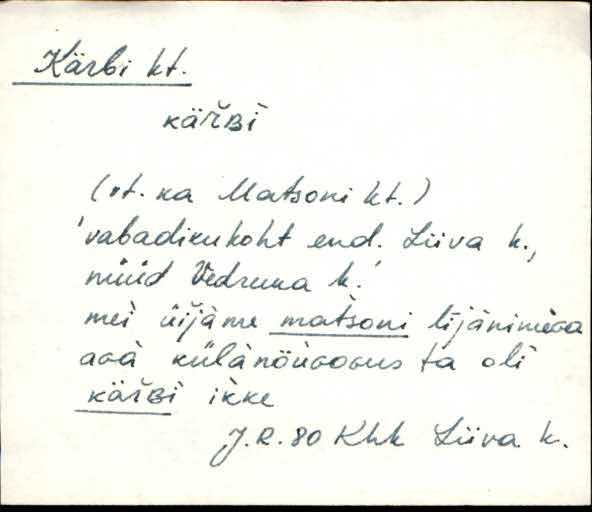 Kärbi kt.
käřʙì
(vt. ka Matsoni kt.)
'vabadikukoht end. Liiva k.,
nüüd Vedruka k.'
mei üijäme matsoni lijänimega
agà külänöugogus ta oli
käřʙì ikke
J.R. 80 Khk Liiva k.